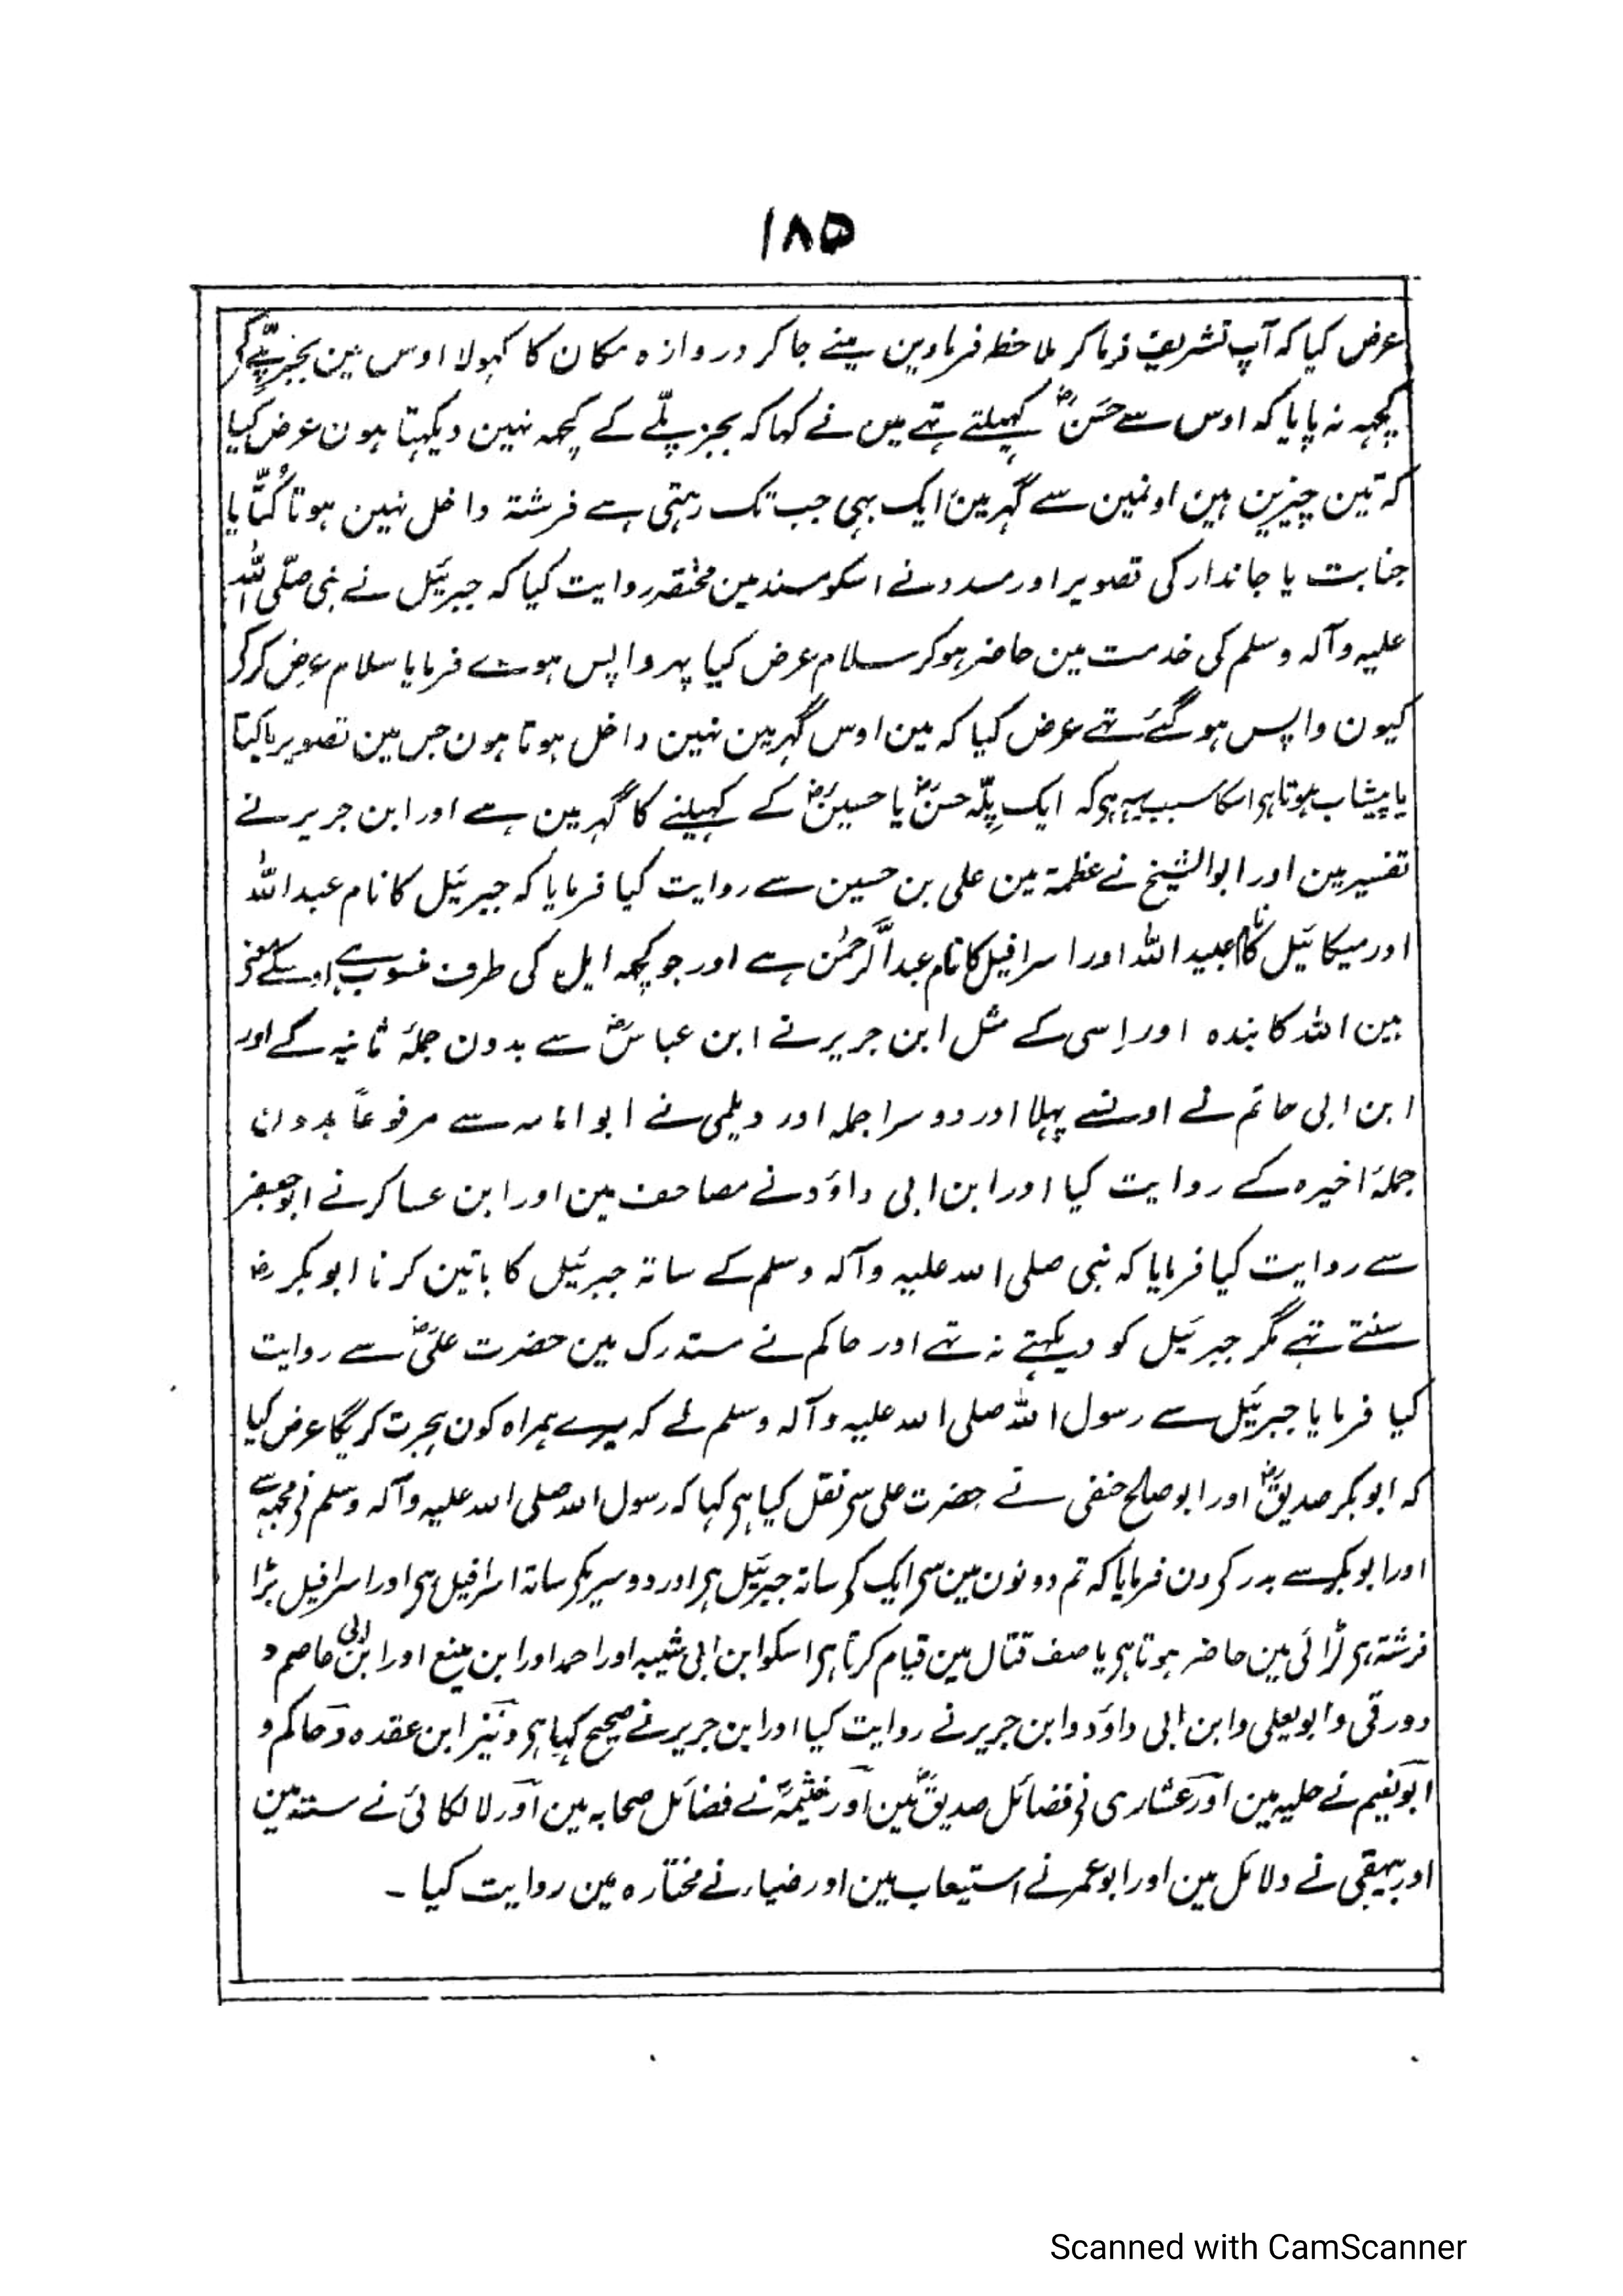 ۱۸۵
عرض کیا کہ آپ تشریف فرما کر ملاحظہ فرماوین مینے جا کر دروازہ مکان کا کہولا اوس مین بجز پلّے کی
کچہہ نہ پایا کہ اوس سے حسنؓ کہیلتے تہے مین نے کہا کہ بجز پلّے کے کچہہ نہین دیکہتا ہون عرض کیا
کہ تین چیزین ہین اونمین سے گہر مین ایک بہی جب تک رہتی ہے فرشتہ داخل نہین ہوتا کُتّا یا
جنابت یا جاندار کی تصویر اور مسدد نے اسکو مسند مین مختصر روایت کیا کہ جبرئیل نے نبی صلّی اللہ
علیہ وآلہ وسلم کی خدمت مین حاضر ہوکر سلام عرض کیا پہر واپس ہوے فرمایا سلام عرض کرکی
کیون واپس ہو گئے تہے عرض کیا کہ مین اوس گہر مین نہین داخل ہوتا ہون جس مین تصویر یا کتا
یا پیشاب ہوتا ہی اسکا سبب یہہ ہی کہ ایک پلّہ حسنؓ یا حسینؓ کے کہیلنے کا گہر مین ہے اور ابن جریر نے
تفسیر مین اور ابو الشیخ نے عظمۃ مین علی بن حسین سے روایت کیا فرمایا کہ جبرئیل کا نام عبد اللہ
اور میکائیل کا نام عبید اللہ اور اسرافیل کا نام عبد الرحمٰن ہے اور جو کچہہ ایل کی طرف منسوب ہے اوسکے معنی
ہین اللہ کا بندہ اور اِسی کے مثل ابن جریر نے ابن عباسؓ سے بدون جملۂ ثانیہ کے اور
ابن ابی حاتم نے اونسے پہلا اور دوسرا جملہ اور دیلمی نے ابو امامہ سے مرفوعاً بدون
جملۂ اخیرہ کے روایت کیا اور ابن ابی داؤد نے مصاحف مین اور ابن عساکر نے ابو جعفر
سے روایت کیا فرمایا کہ نبی صلی اللہ علیہ وآلہ وسلم کے ساتہ جبرئیل کا باتین کرنا ابو بکر رض
سنتے تہے مگر جبرئیل کو دیکہتے نہ تہے اور حاکم نے مستدرک مین حضرت علیؓ سے روایت
کیا فرمایا جبرئیل سے رسول اللہ صلی اللہ علیہ وآلہ وسلم نے کہ میرے ہمراہ کون ہجرت کریگا عرض کیا
کہ ابو بکر صدیقؓ اور ابو صالح حنفی نے حضرت علی سی نقل کیا ہی کہا کہ رسول اللہ صلی اللہ علیہ وآلہ وسلم نی مجہہ سے
اور ابو بکر سے بدر کی دن فرمایا کہ تم دونون مین سی ایک کی ساتہ جبرئیل ہی اور دوسریکی ساتہ اسرافیل ہی اور اسرافیل بڑا
فرشتہ ہی لڑائی مین حاضر ہوتا ہی یا صف قتال مین قیام کرتا ہی اسکو ابن ابی شیبہ اور احمد اور ابن منیع اور ابن ابی عاصم و
دورقی و ابو یعلی و ابن ابی داؤد و ابن جریر نے روایت کیا اور ابن جریر نے صحیح کہا ہی و نیز ابن عقدہ و حاکم و
ابو نعیم نے حلیہ مین اور عشاری نی فضائل صدیقؓ مین اور خثیمہ نے فضائل صحابہ مین اور لالکائی نے سنتہ مین
اور بیہقی نے دلائل مین اور ابو عمر نے استیعاب مین اور ضیاء نے مختارہ مین روایت کیا ۔
Scanned with CamScanner